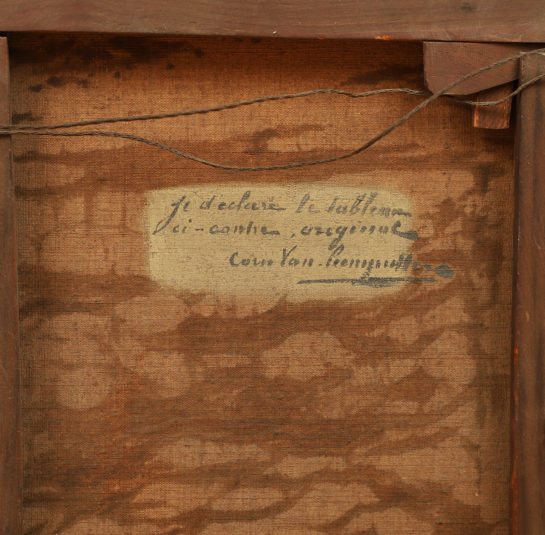 je declare le tableau
ci-contre, original
Corn Van Leemputten